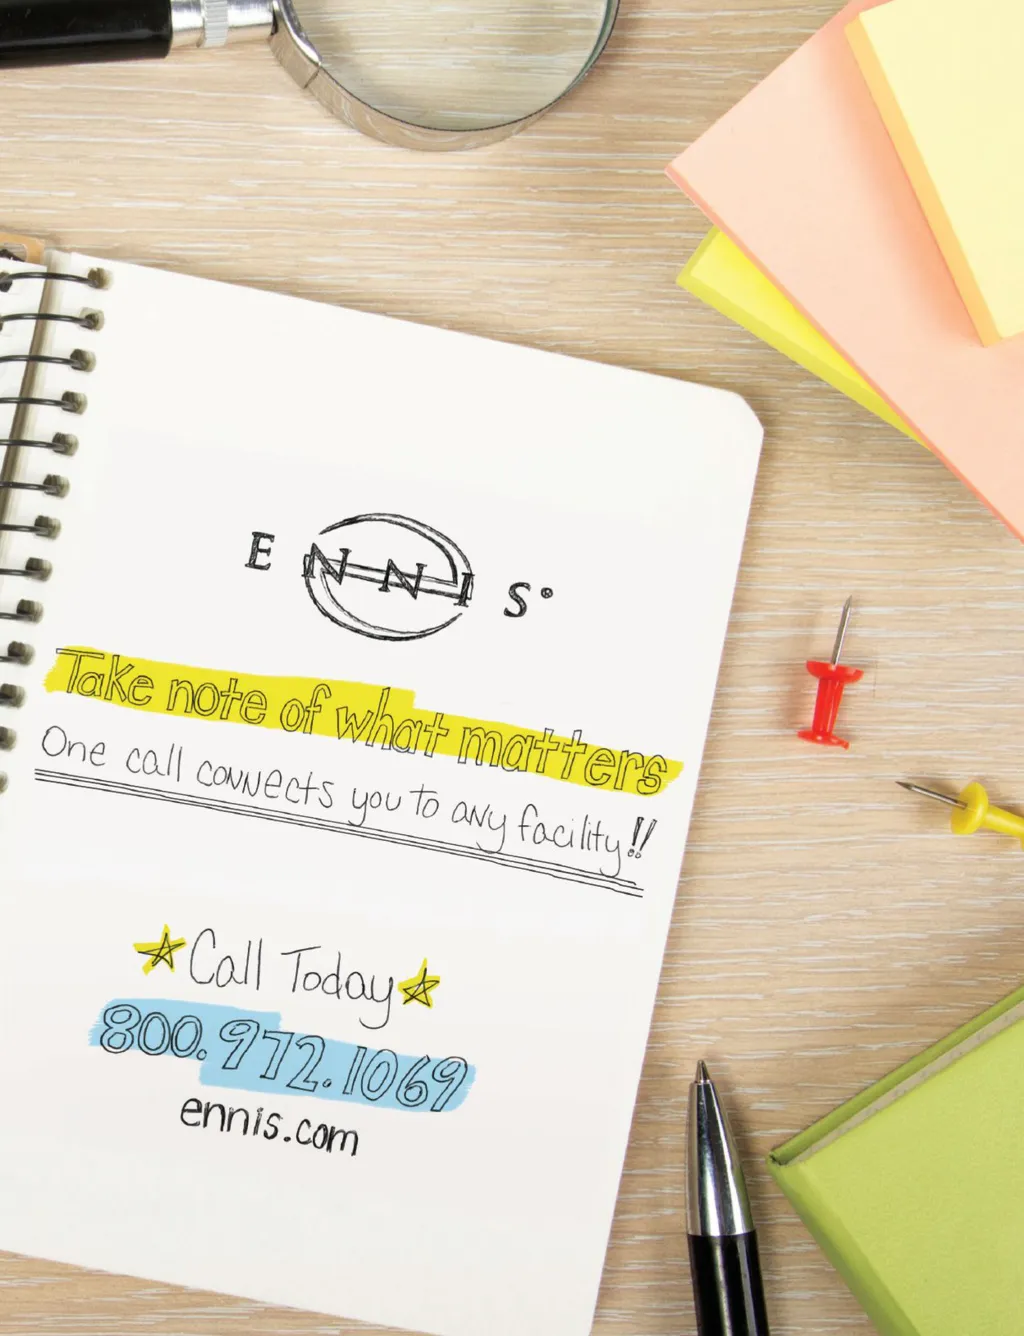 ENNIS®
Take note of what matters
One call connects you to any facility!!
Call Today
800.972.1069
ennis.com